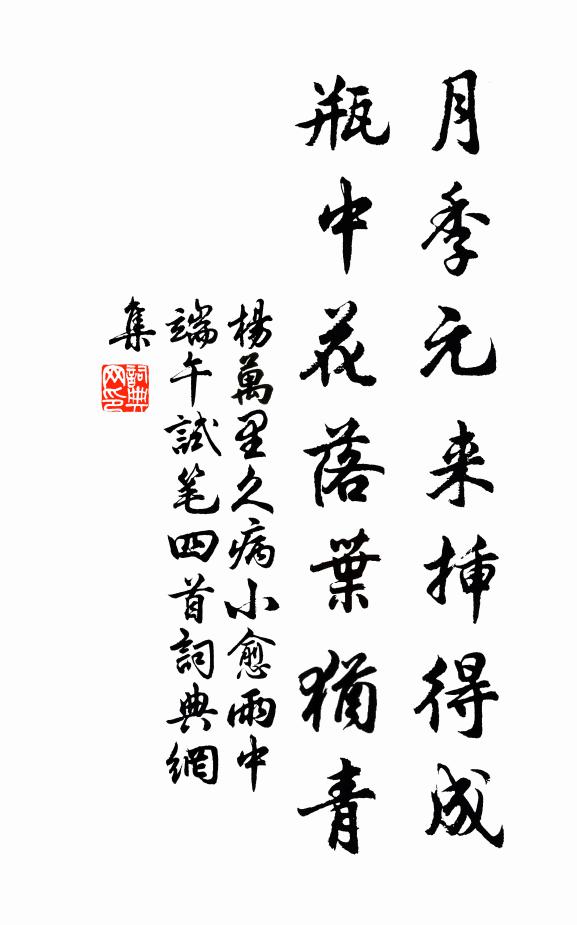 月季元来插得成
瓶中花落葉猶青
楊萬里久病小愈雨中
端午試笔四首詞典網
集
詞典
网印